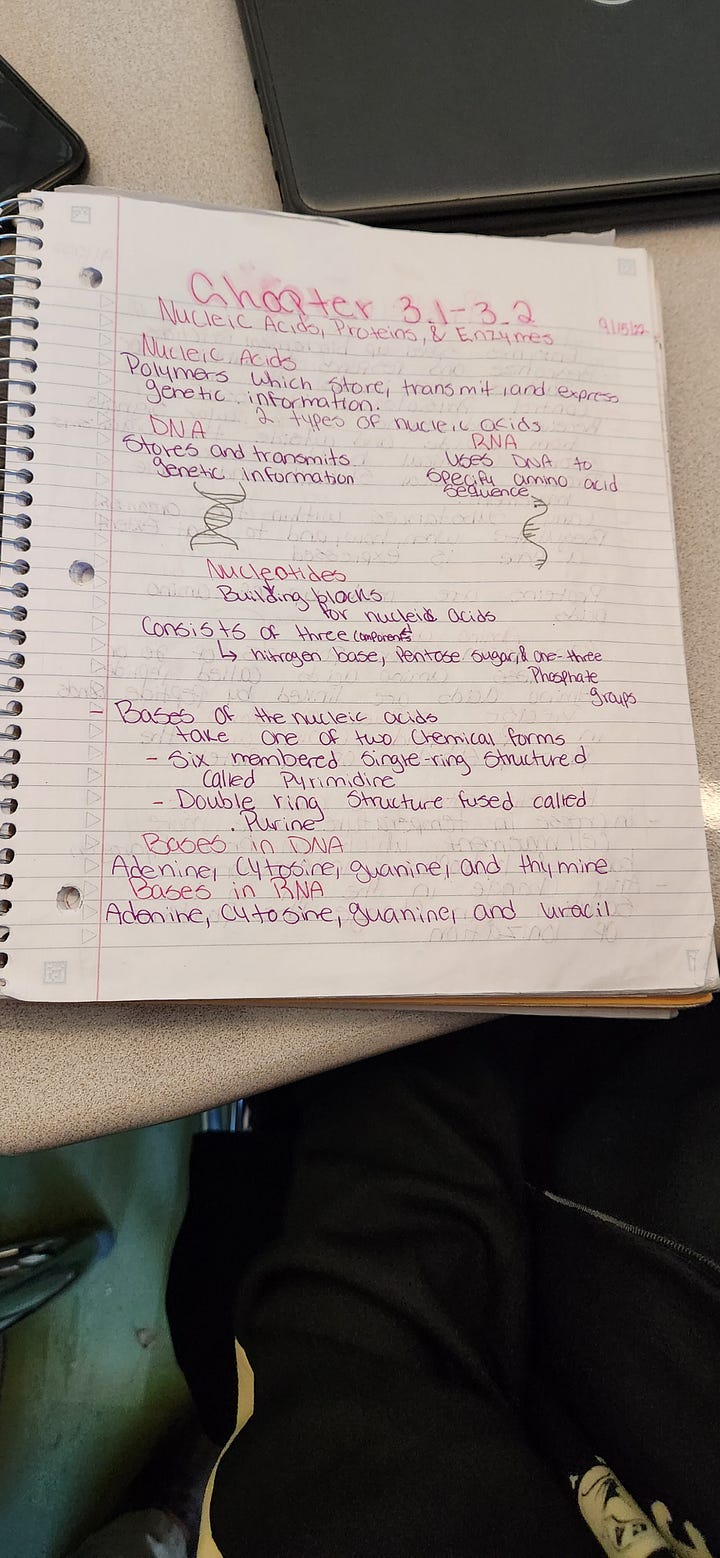 Chapter 3.1-3.2
Nucleic Acids, Proteins, & Enzymes 9/15/22
Nucleic Acids
Polymers which store, transmit, and express
genetic information.
2 types of nucleic acids
DNA RNA
Stores and transmits Uses DNA to
genetic information Specify amino acid
sequence
Nucleotides
Building blocks
for nucleic acids
Consists of three components
↳ nitrogen base, pentose sugar, & one-three
Phosphate
groups
- Bases of the nucleic acids
take one of two Chemical forms
- Six membered Single-ring Structured
Called Pyrimidine
- Double ring Structure fused called
Purine
Bases in DNA
Adenine, Cytosine, guanine, and thymine
Bases in RNA
Adenine, cytosine, guanine, and uracil